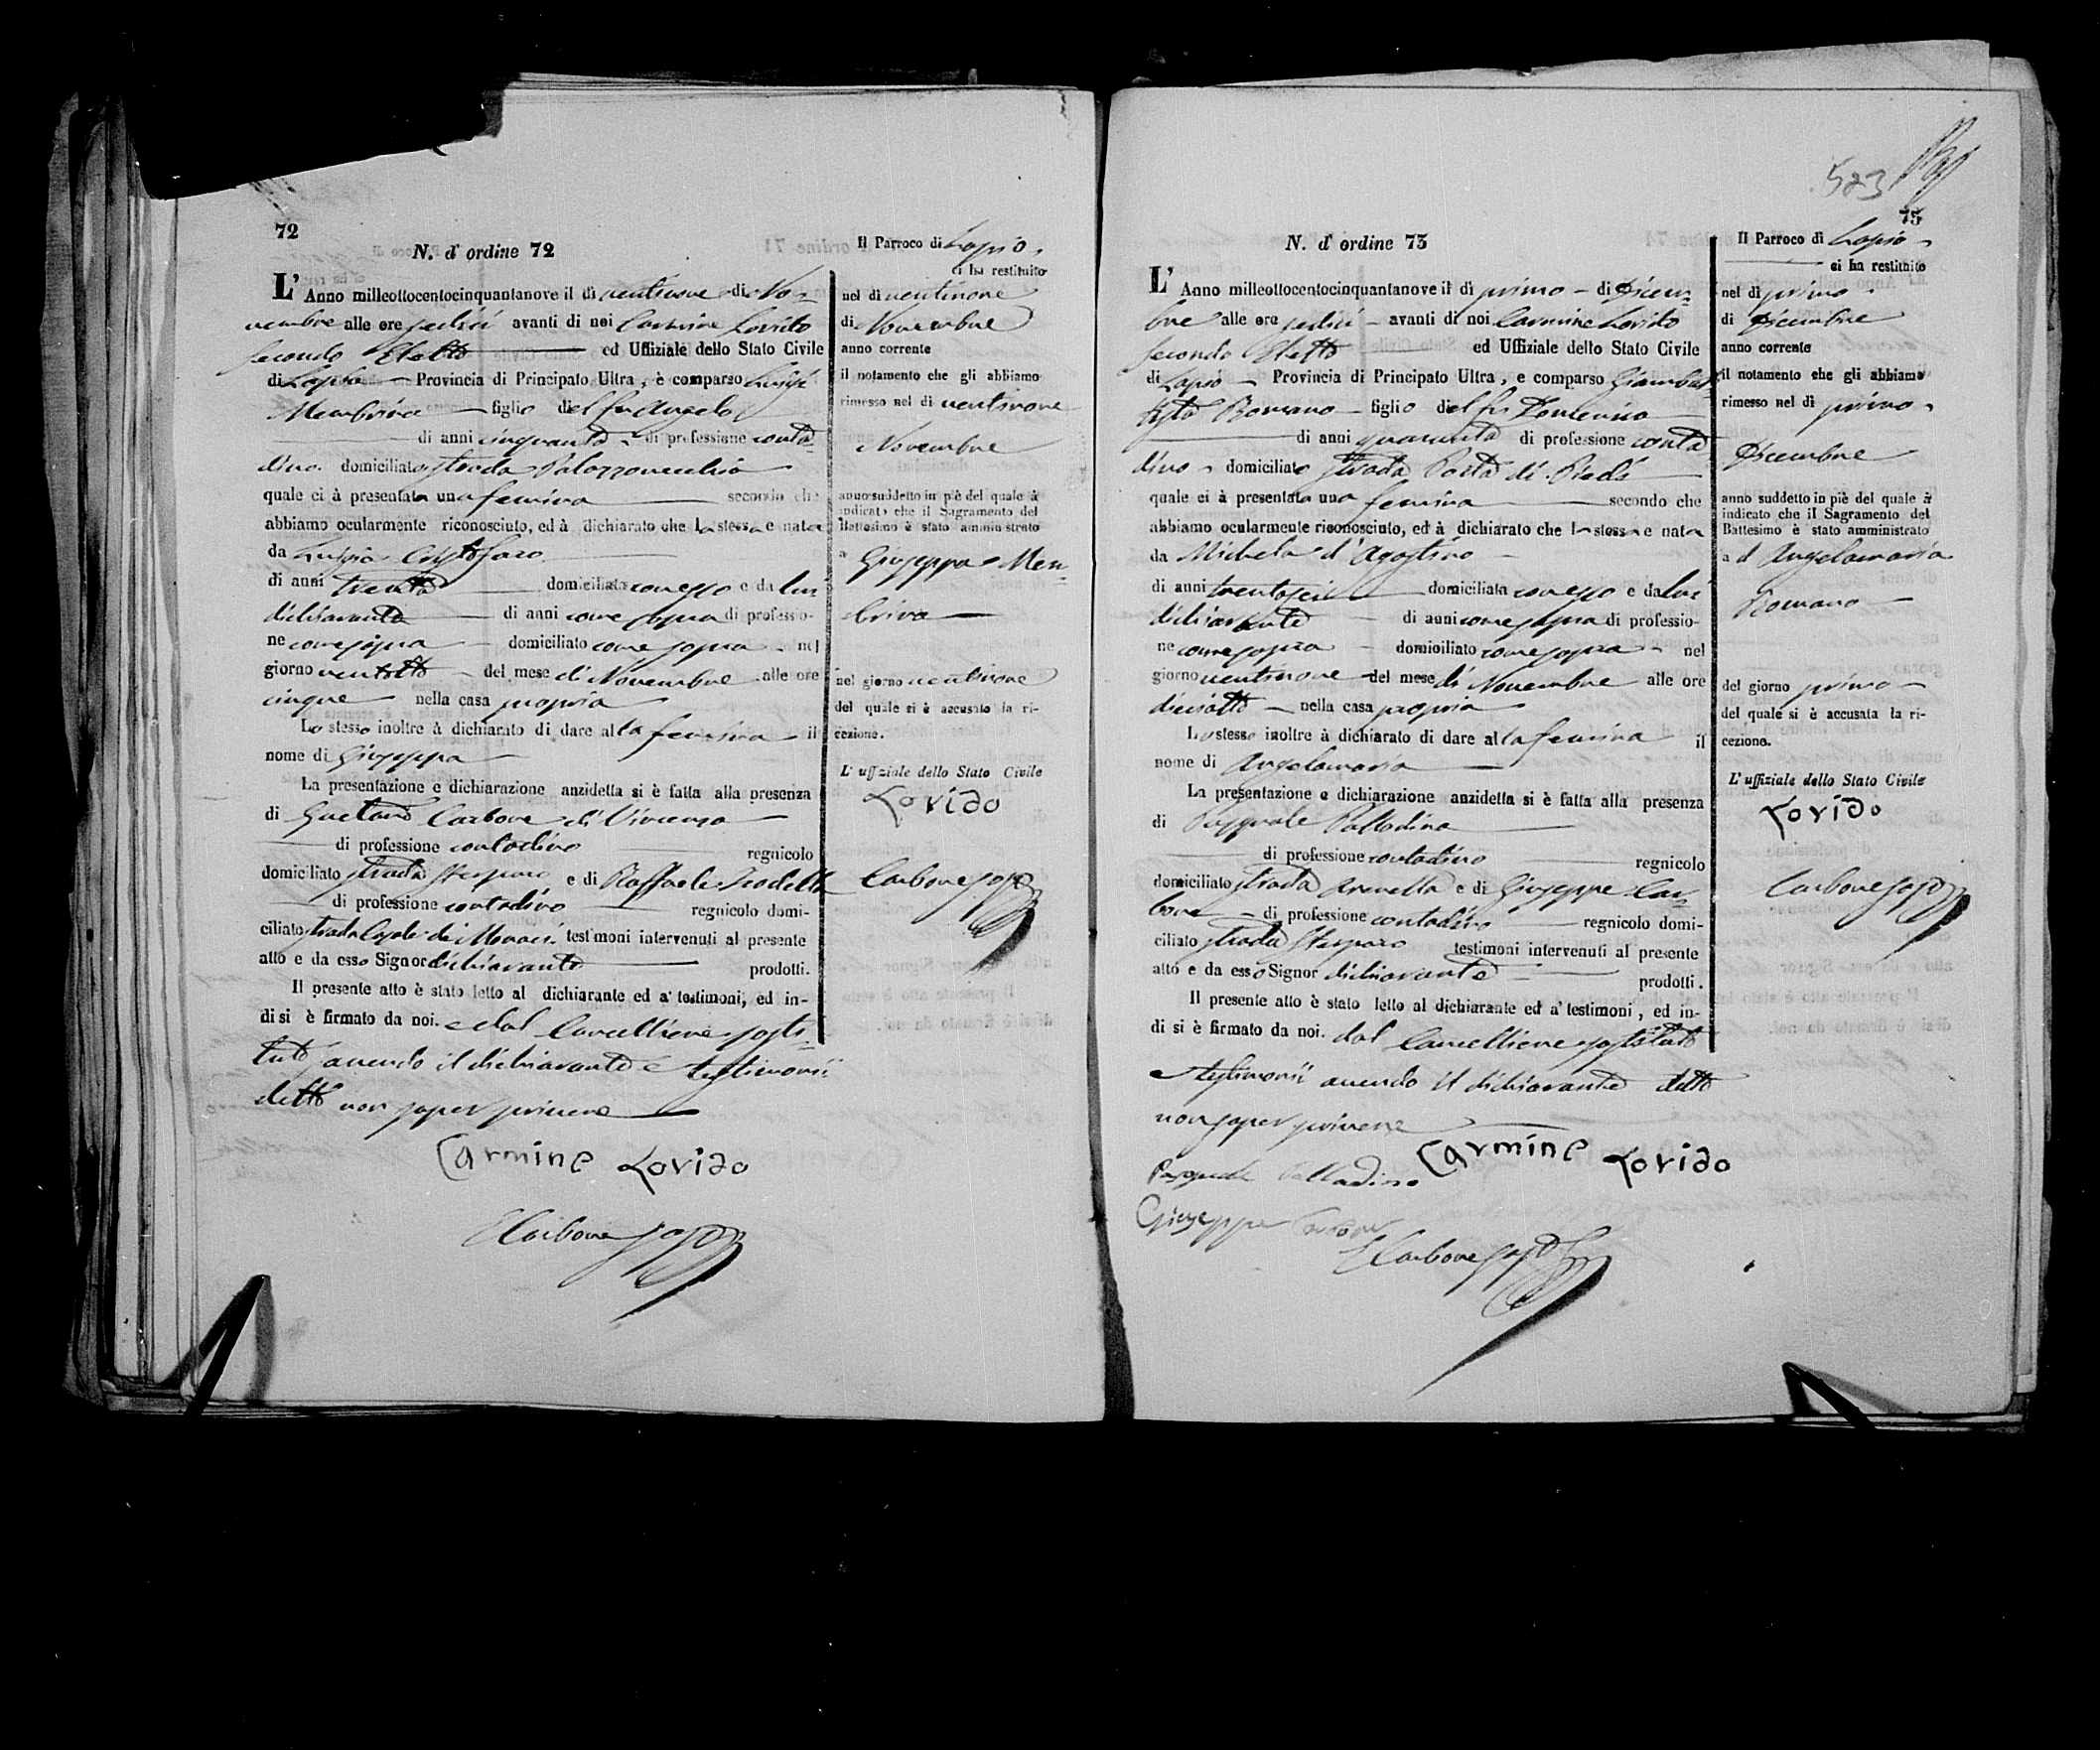 72
N. d' ordine 72
L' Anno millottocentocinquantanove il dì ventinove di No-
vembre alle ore sedici avanti di noi Carmine Lorido
secondo Eletto ed Uffiziale dello Stato Civile
di Lapio Provincia di Principato Ultra, è comparso Luigi
Membrino figlio del fu Angelo
di anni cinquanta di professione conta
dino domiciliato strada Palazzovecchio
quale ci à presentata una femina secondo che
abbiamo ocularmente riconosciuto, ed à dichiarato che la stessa e nata
da Luigia Cristofaro
di anni trenta domiciliata con esso e da lui
dichiarante di anni come sopra di professio-
ne come sopra domiciliato come sopra nel
giorno ventotto del mese di Novembre alle ore
cinque nella casa propria
Lo stesso inoltre à dichiarato di dare alla femina il
nome di Giuseppa
La presentazione e dichiarazione anzidetta si è fatta alla presenza
di Gaetano Carbone di Vincenzo
di professione contadino regnicolo
domiciliato strada e di Raffaele
di professione contadino regnicolo domi-
ciliato strada de' Monaci testimoni intervenuti al presente
atto e da esso Signor dichiarante prodotti.
Il presente atto è stato letto al dichiarante ed a' testimoni, ed in-
di si è firmato da noi. e dal Cancelliere sosti-
tuto avendo il dichiarante e testimonii
detto non saper scrivere
Carmine Lorido
Carbone sosto
Il Parroco di Lapio
ci ha restituito
nel dì ventinove
di Novembre
anno corrente
il notamento che gli abbiamo
rimesso nel dì ventinove
Novembre
anno suddetto in piè del quale à
indicato che il Sagramento del
Battesimo è stato amministrato
a Giuseppa Mem-
brino
nel giorno ventinove
del quale si è accusato la ri-
cezione.
L' uffiziale dello Stato Civile
Lorido
Carbone sosto
523
73
N. d' ordine 73
L' Anno millottocentocinquantanove il dì primo di Dicem-
bre alle ore sedici avanti di noi Carmine Lorido
secondo Eletto ed Uffiziale dello Stato Civile
di Lapio Provincia di Principato Ultra, e comparso Giambat-
tista Romano figlio del fu Domenico
di anni quaranta di professione conta
dino domiciliato strada Porta di Piedi
quale ci à presentata una femina secondo che
abbiamo ocularmente riconosciuto, ed à dichiarato che la stessa e nata
da Michela d'Agostino
di anni trentasei domiciliata con esso e da lui
dichiarante di anni come sopra di professio-
ne come sopra domiciliato come sopra nel
giorno ventinove del mese di Novembre alle ore
dieciotto nella casa propria
Lo stesso inoltre à dichiarato di dare alla femina il
nome di Angelamaria
La presentazione e dichiarazione anzidetta si è fatta alla presenza
di Pasquale Palladino
di professione contadino regnicolo
domiciliato strada e di Giuseppe Car-
bone di professione contadino regnicolo domi-
ciliato strada testimoni intervenuti al presente
atto e da esso Signor dichiarante prodotti.
Il presente atto è stato letto al dichiarante ed a' testimoni, ed in-
di si è firmato da noi. dal Cancelliere sostituto
e testimonii avendo il dichiarante detto
non saper scrivere
Carmine Lorido
Pasquale Palladino
Giuseppe Carbone
Carbone sosto
Il Parroco di Lapio
ci ha restituito
nel dì primo
di Dicembre
anno corrente
il notamento che gli abbiamo
rimesso nel dì primo
Dicembre
anno suddetto in piè del quale à
indicato che il Sagramento del
Battesimo è stato amministrato
a d Angelamaria
Romano
del giorno primo
del quale si è accusata la ri-
cezione.
L' uffiziale dello Stato Civile
Lorido
Carbone sosto